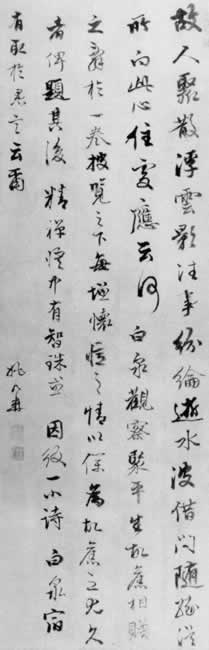 故人聚散浮雲影往事紛綸逝水波借問隨緣從
所向此心住處應云何 白泉觀察聚平生故舊相贈
之辭於一卷披覽之下每增懷舊之情以為故舊之尤久
者俾題其後 精禪有智珠 因綴一小詩 白泉宿
有取於言云爾
姚鼐